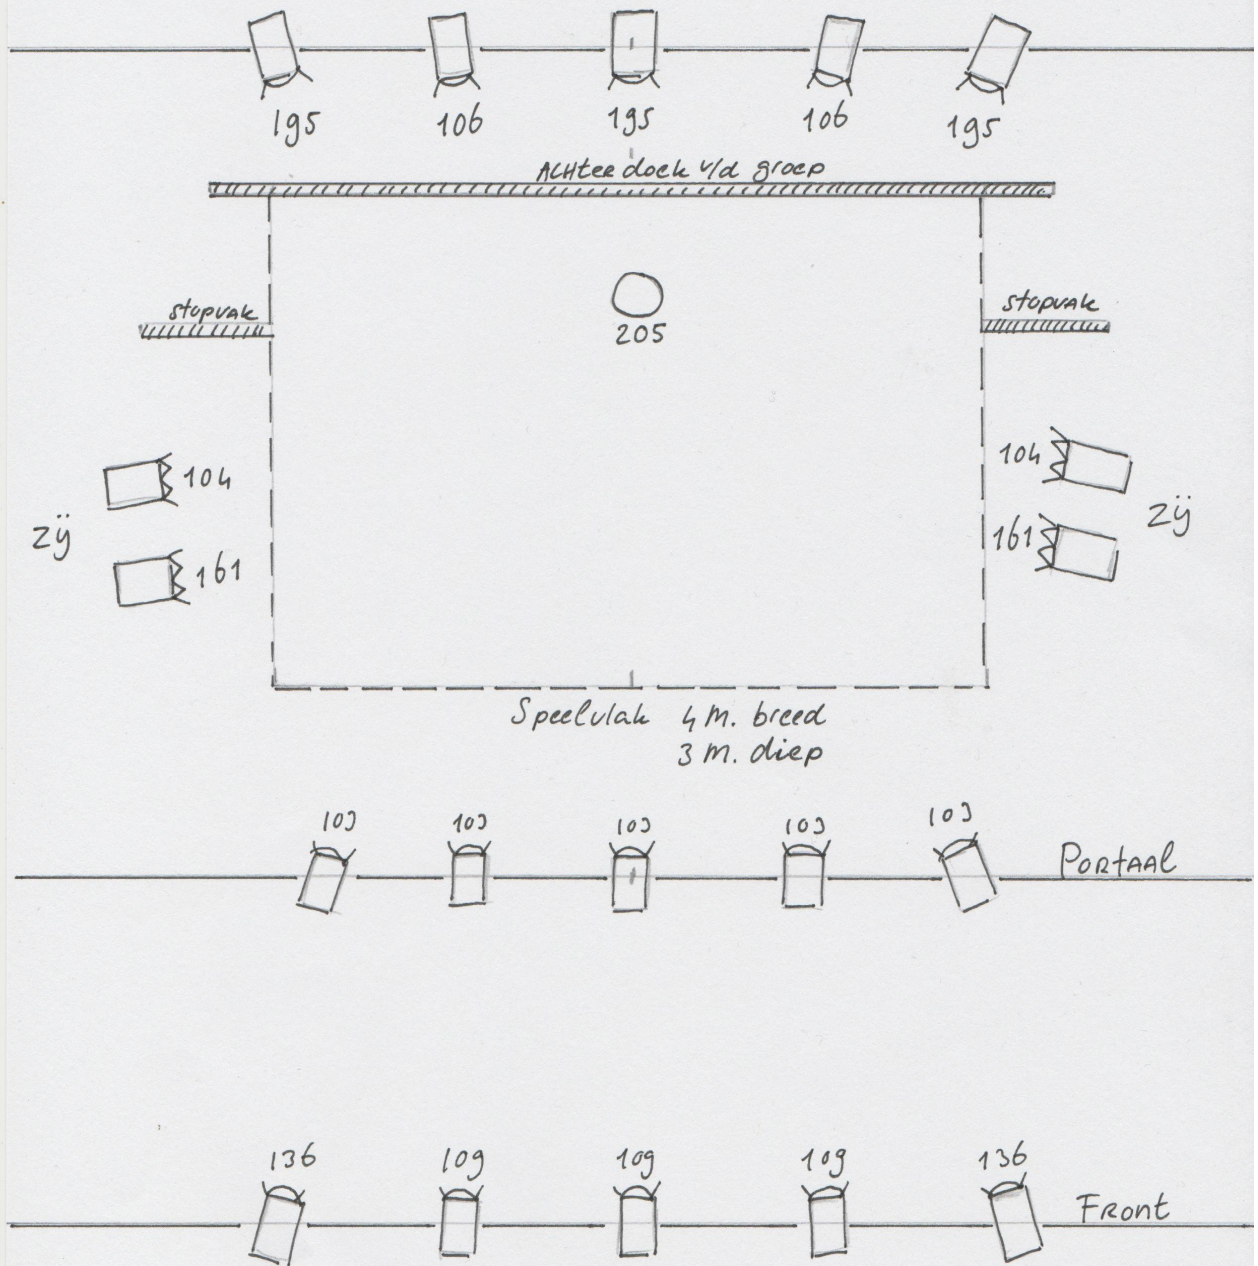 195 106 195 106 195
ACHter doek v/d groep
stopvak
stopvak
205
104
104
zÿ
zÿ
161
161
Speelvlak 4 M. breed
3 M. diep
103 103 103 103 103
PORTAAL
136 109 109 109 136
FRONT